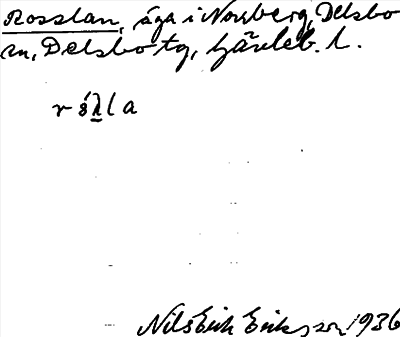 Rosslan, äga i Norrberg, Delsbo
sn, Delsbo tg, Gävleb. l.
Nils Erik Eriksson 1936